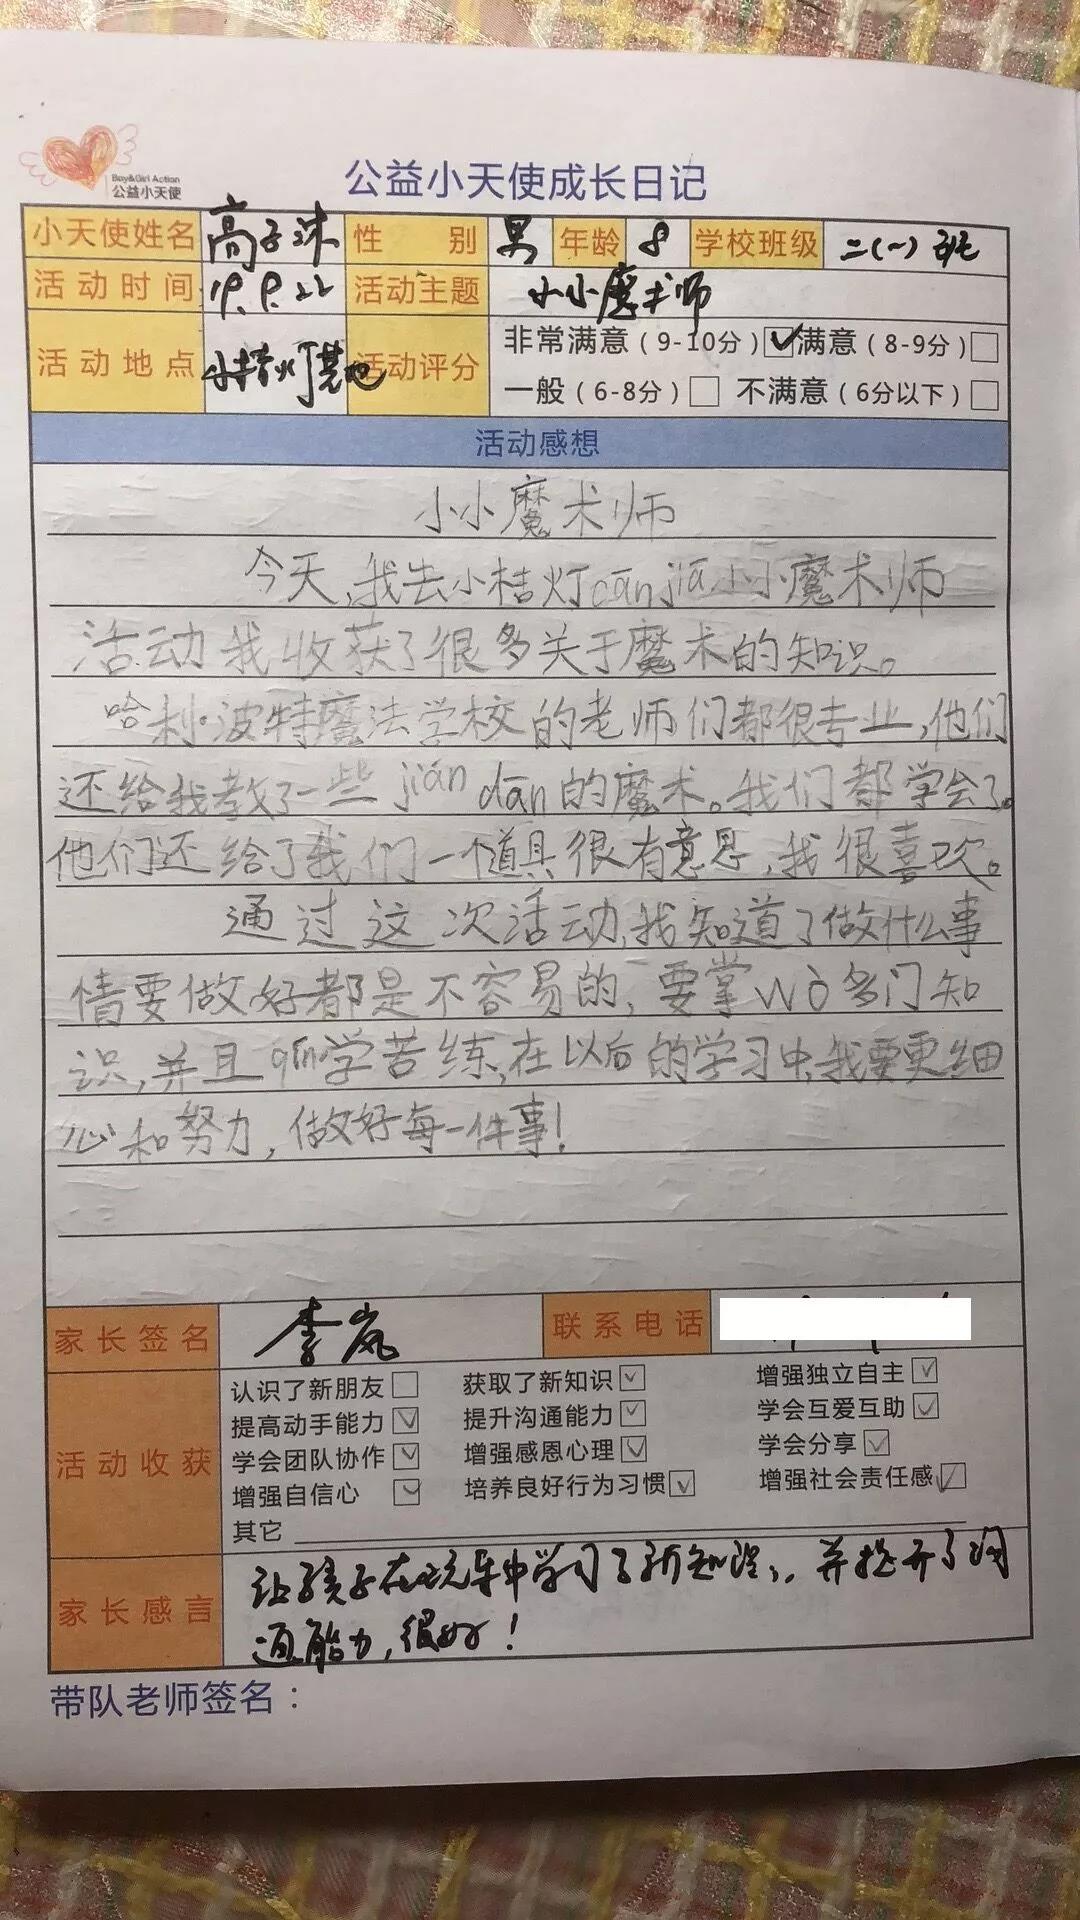 Boy&Girl Action
公益小天使
公益小天使成长日记
小天使姓名 高子沐 性别 男 年龄 8 学校班级 二(一)班
活动时间 19.9.22 活动主题 小小魔术师
活动地点 小桔灯基地 活动评分 非常满意（9-10分）✓ 满意（8-9分）
一般（6-8分） 不满意（6分以下）
活动感想
小小魔术师
今天,我去小桔灯cān jiā小小魔术师
活动我收获了很多关于魔术的知识。
哈利·波特魔法学校的老师们都很专业,他们
还给我教了一些jiǎn dān的魔术。我们都学会了。
他们还给了我们一个道具很有意思,我很喜欢。
通过这次活动,我知道了做什么事
情要做好都是不容易的,要掌wò多门知
识,并且qín学苦练,在以后的学习中,我要更细
心和努力,做好每一件事!
家长签名 李岚 联系电话
活动收获
认识了新朋友 获取了新知识✓ 增强独立自主✓
提高动手能力✓ 提升沟通能力✓ 学会互爱互助✓
学会团队协作✓ 增强感恩心理✓ 学会分享✓
增强自信心✓ 培养良好行为习惯✓ 增强社会责任感✓
其它
家长感言 让孩子在玩乐中学习了新知识,并提升了沟
通能力,很好!
带队老师签名：